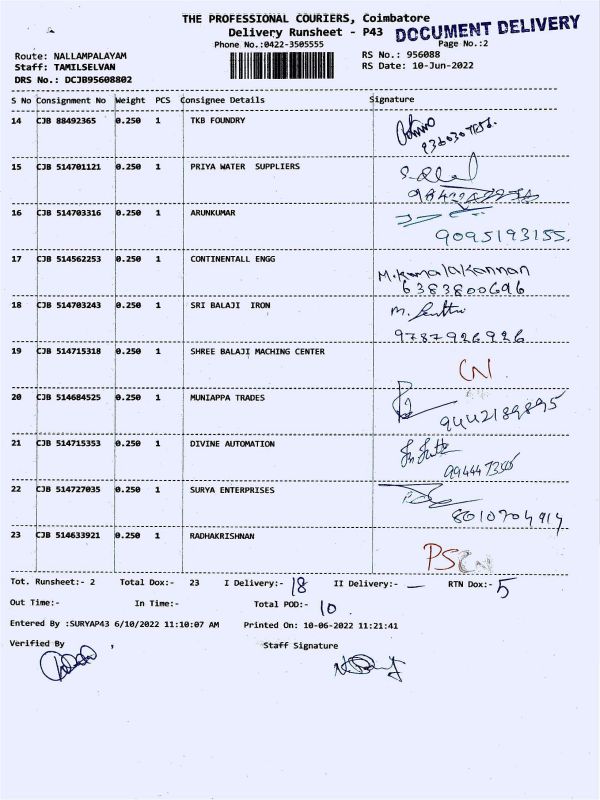 THE PROFESSIONAL COURIERS, Coimbatore
Delivery Runsheet - P43 DOCUMENT DELIVERY
Phone No.:0422-3505555 Page No.:2
Route: NALLAMPALAYAM RS No.: 956088
Staff: TAMILSELVAN RS Date: 10-Jun-2022
DRS No.: DCJB95608802
S No Consignment No Weight PCS Consignee Details Signature
14 CJB 88492365 0.250 1 TKB FOUNDRY
15 CJB 514701121 0.250 1 PRIYA WATER SUPPLIERS
16 CJB 514703316 0.250 1 ARUNKUMAR
9095193155.
17 CJB 514562253 0.250 1 CONTINENTALL ENGG
M.Kamalakannan
6383800696
18 CJB 514703243 0.250 1 SRI BALAJI IRON
9787926926
19 CJB 514715318 0.250 1 SHREE BALAJI MACHING CENTER
CN
20 CJB 514684525 0.250 1 MUNIAPPA TRADES
9442189895
21 CJB 514715353 0.250 1 DIVINE AUTOMATION
22 CJB 514727035 0.250 1 SURYA ENTERPRISES
8010704914
23 CJB 514633921 0.250 1 RADHAKRISHNAN
PS
Tot. Runsheet:- 2 Total Dox:- 23 I Delivery:- 18 II Delivery:- — RTN Dox:- 5
Out Time:- In Time:- Total POD:- 10
Entered By :SURYAP43 6/10/2022 11:10:07 AM Printed On: 10-06-2022 11:21:41
Verified By , Staff Signature